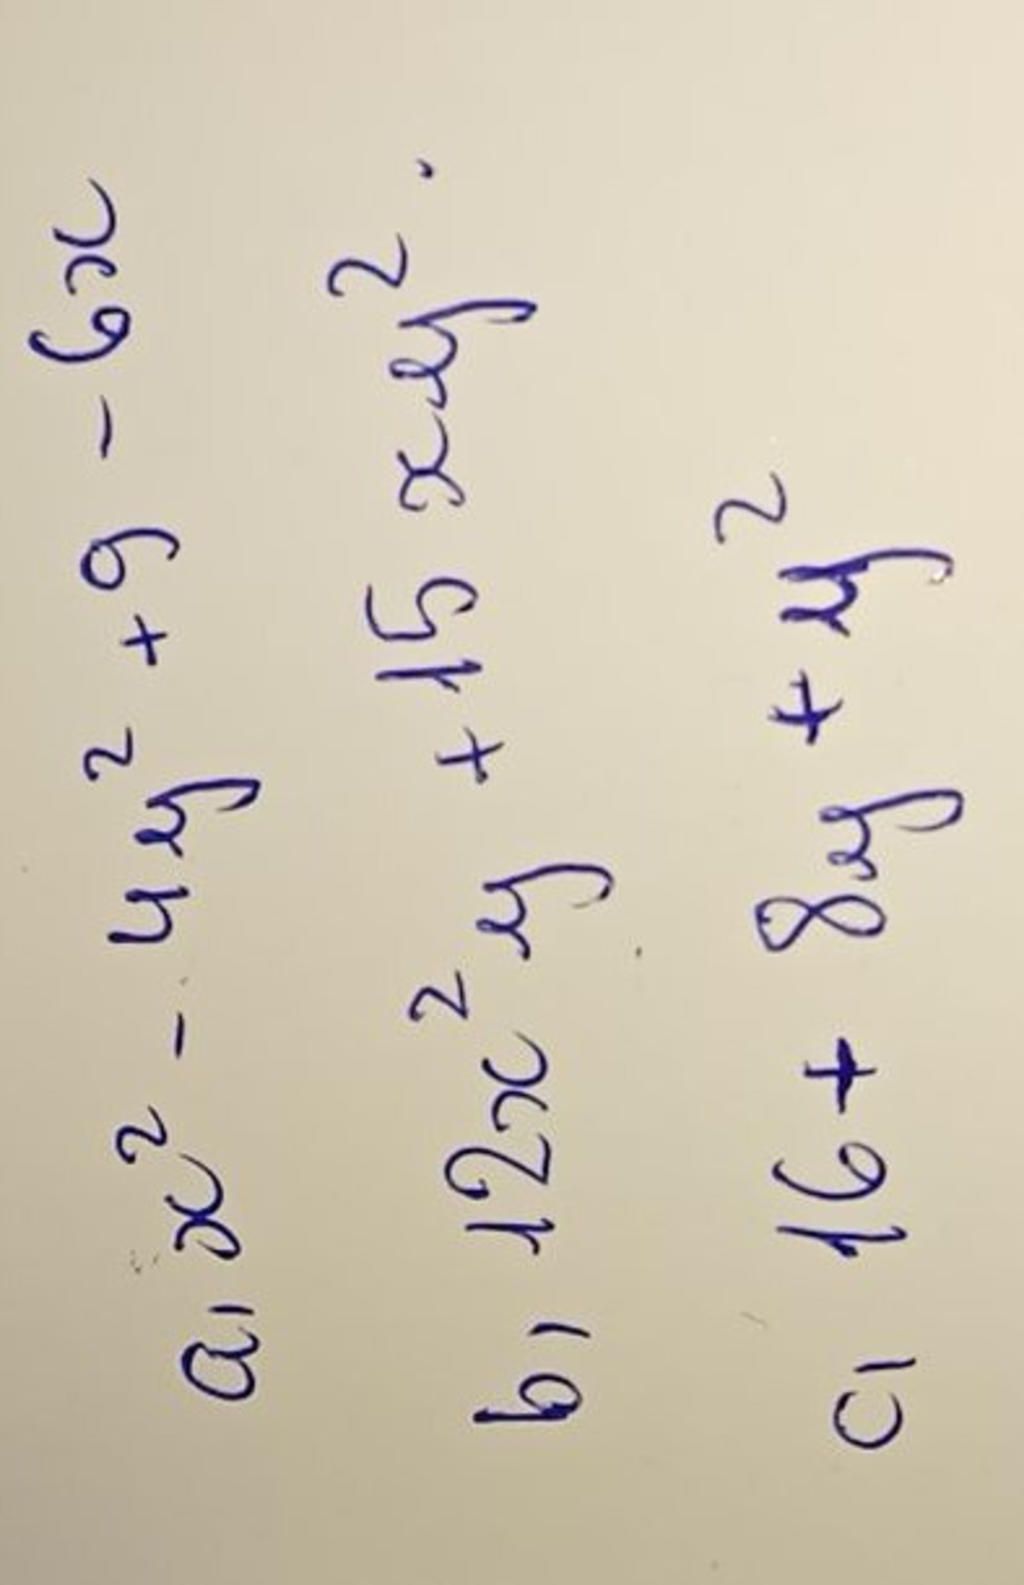 a, x² - 4y² + 9 - 6x
b, 12x²y + 15xy².
c, 16 + 8y + y²